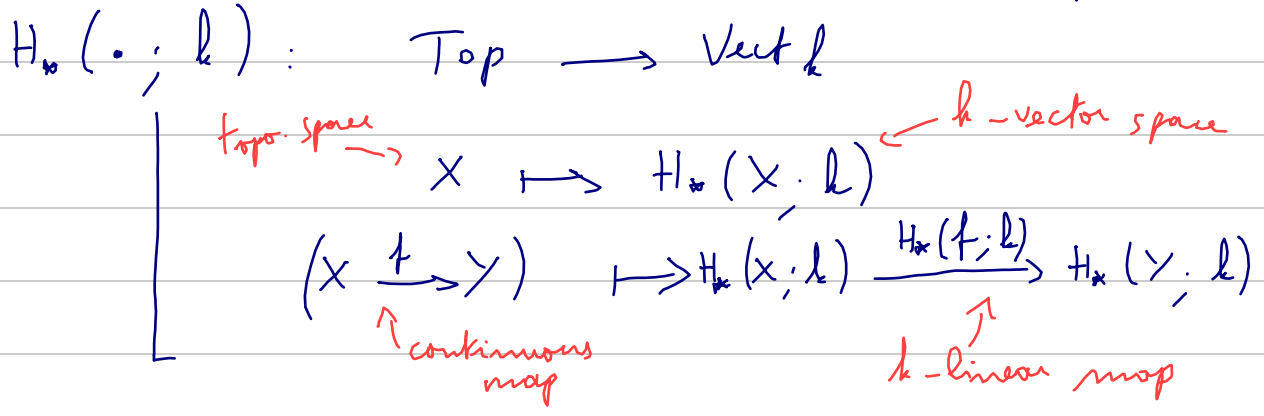 H_*(•; k) : Top ⟶ Vect k
topo. space → k-vector space
X ⟼ H_*(X; k)
(X —f→ Y) ⟼ H_*(X; k) —H_*(f; k)→ H_*(Y; k)
continuous map
k-linear map